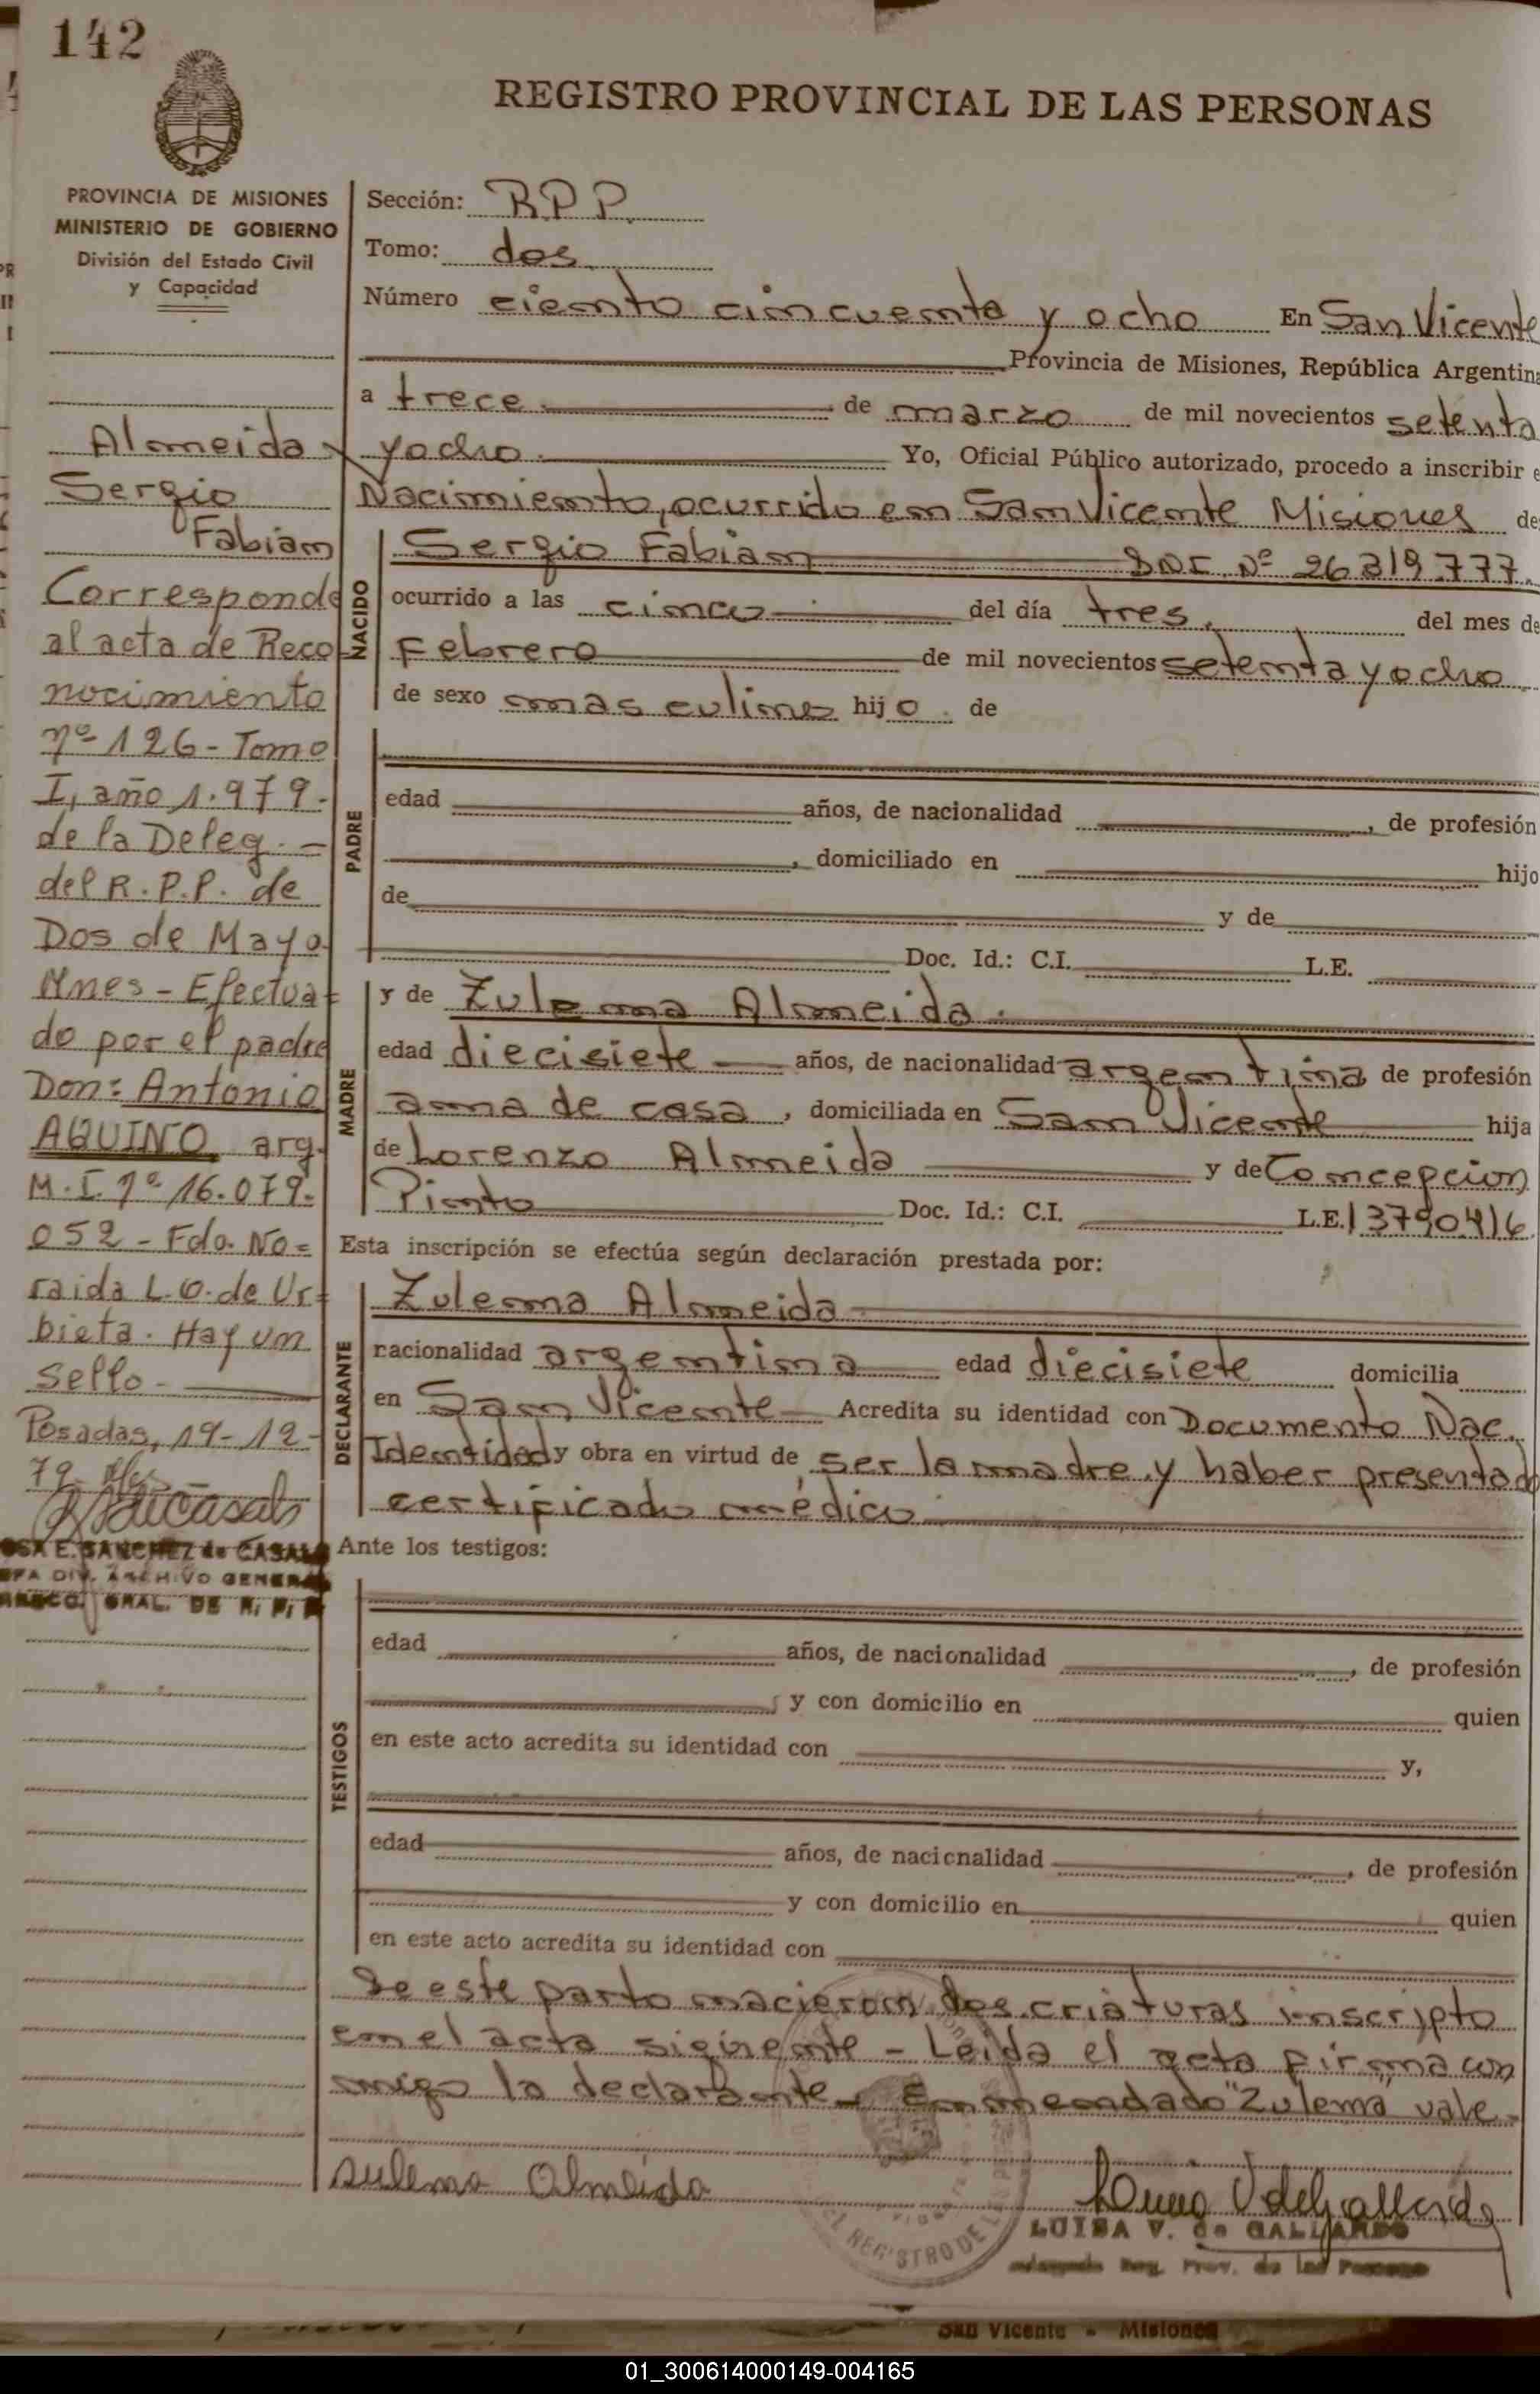 142
REGISTRO PROVINCIAL DE LAS PERSONAS
PROVINCIA DE MISIONES
MINISTERIO DE GOBIERNO
División del Estado Civil
y Capacidad
Almeida
Sergio
Fabian
Corresponde
al acta de Reco
nocimiento
nº 126 - Tomo
I, año 1.979.
de la Deleg. =
del R.P.P. de
Dos de Mayo.
Mnes - Efectua=
do por el padre
Don: Antonio
AQUINO arg.
M.I. nº 16.079.
052 - Fdo. No=
raida L.O. de Ur=
bieta. Hay un
sello -
Posadas, 19-12-
79.
OSA E. SANCHEZ de CASALS
EFA DIV. ARCHIVO GENERAL
GRAL. DE R. P. P.
Sección: R.P.P.
Tomo: dos
Número ciento cincuenta y ocho En San Vicente
Provincia de Misiones, República Argentina
a trece de marzo de mil novecientos setenta
y ocho. Yo, Oficial Público autorizado, procedo a inscribir e
Nacimiento, ocurrido en San Vicente Misiones de
NACIDO
Sergio Fabian DNI. Nº 26.319.777.
ocurrido a las cinco del día tres. del mes de
Febrero de mil novecientos setenta y ocho
de sexo masculino hijo de
PADRE
edad años, de nacionalidad , de profesión
, domiciliado en hijo
de y de
Doc. Id.: C.I. L.E.
MADRE
y de Zulema Almeida.
edad diecisiete años, de nacionalidad argentina de profesión
ama de casa, domiciliada en San Vicente hija
de Lorenzo Almeida y de Concepcion
Pinto Doc. Id.: C.I. L.E. 13790416
Esta inscripción se efectúa según declaración prestada por:
DECLARANTE
Zulema Almeida
nacionalidad argentina edad diecisiete domicilia
en San Vicente Acredita su identidad con Documento Nac.
Identidad y obra en virtud de ser la madre y haber presentado
certificado médico
Ante los testigos:
TESTIGOS
edad años, de nacionalidad , de profesión
y con domicilio en quien
en este acto acredita su identidad con y,
edad años, de nacionalidad , de profesión
y con domicilio en quien
en este acto acredita su identidad con
De este parto nacieron dos criaturas inscripto
en el acta sigiente - Leida el acta firma con
migo la declarante - Enmendado "Zulema" vale.
Sulema Almeida
LUISA V. de GALLARDO
Reg. Prov. de las Personas
REGISTRO DE LA
San Vicente - Misiones
01_300614000149-004165